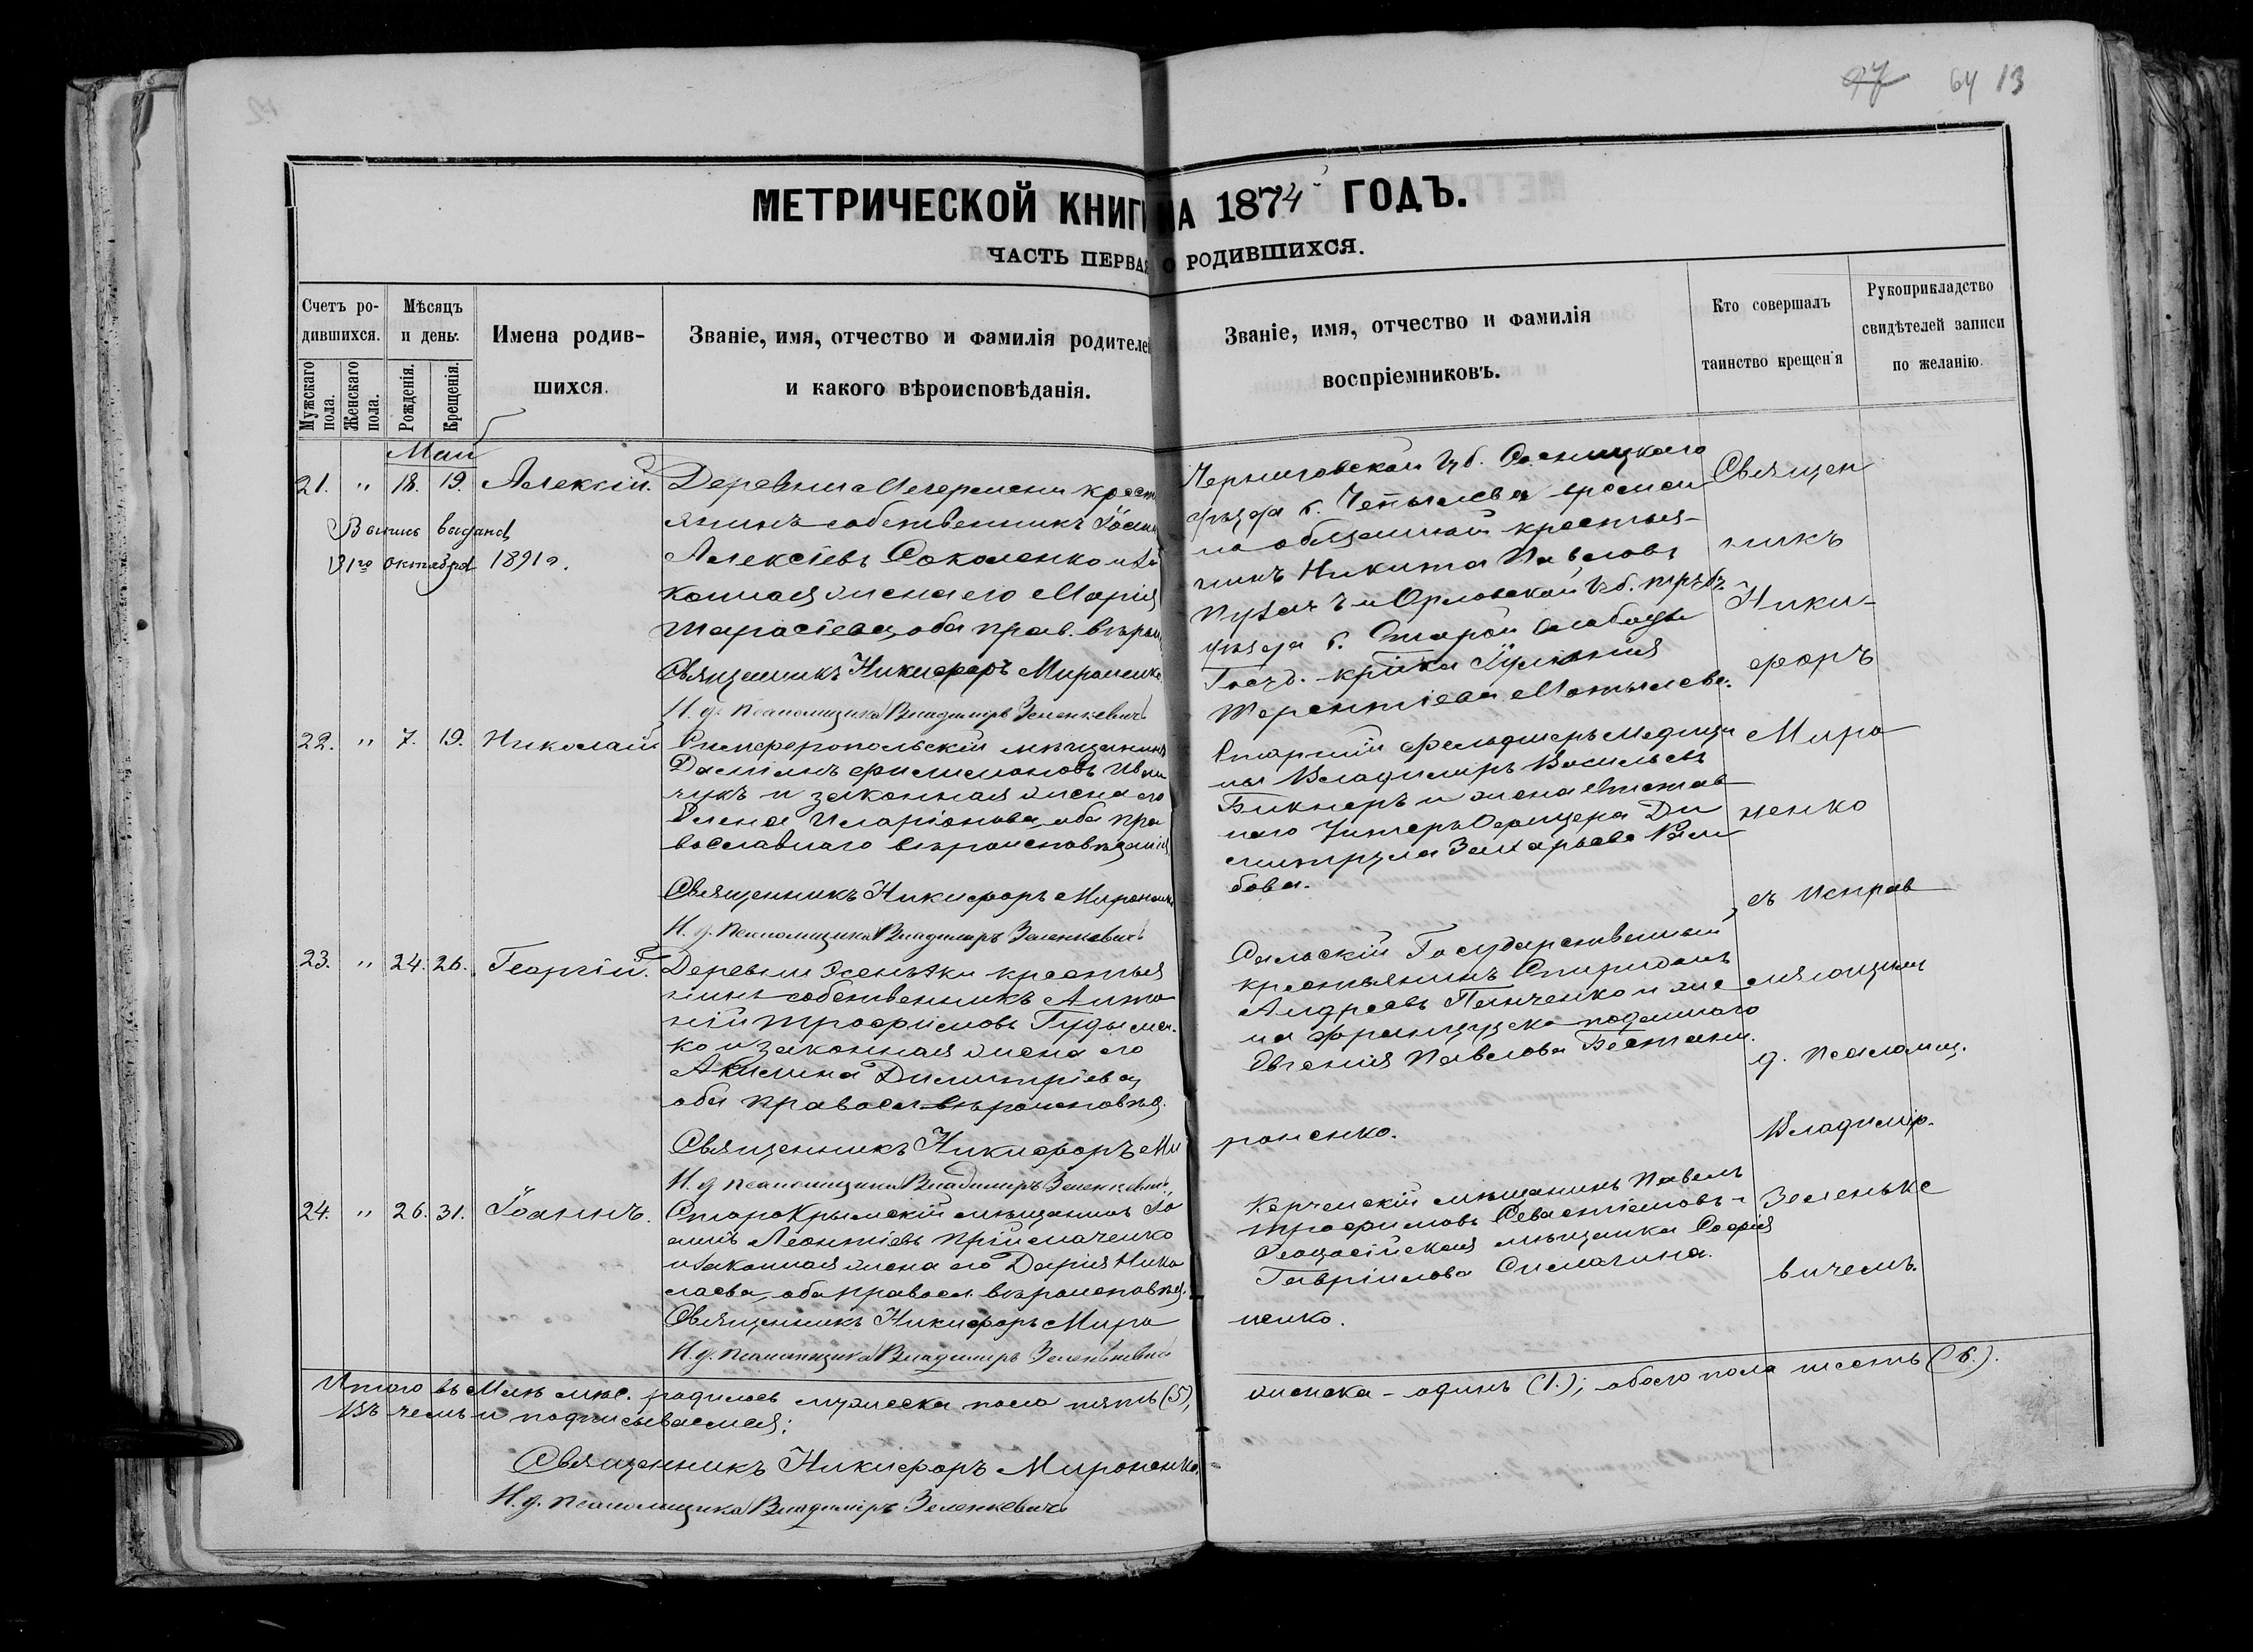 97 64 13
МЕТРИЧЕСКОЙ КНИГИ НА 1874 ГОДЪ.
ЧАСТЬ ПЕРВАЯ О РОДИВШИХСЯ.
Счетъ ро-
дившихся.
Мужскаго пола.
Женскаго пола.
Мѣсяцъ
и день.
Рожденія.
Крещенія.
Имена родив-
шихся.
Званіе, имя, отчество и фамилія родителей
и какого вѣроисповѣданія.
Званіе, имя, отчество и фамилія
воспріемниковъ.
Кто совершалъ
таинство крещенія
Рукоприкладство
свидѣтелей записи
по желанію.
Май
21. " 18. 19. Алексій.
Выпись выдана
31го октября 1891г.
Деревни крест
янинъ собственникъ Іоаннъ
Алексіевъ Соколенко и за
конная жена его Марія
Тарасіева, оба прав. вѣроис
Священникъ Никифоръ Мироненко
И. д. псаломщика Владимиръ Зеленкевичъ
Черниговской Губ. Сосницкаго
уѣзда с.
но обязанный крестья-
нинъ Никита Павловъ
и Орловской Губ. Трубч.
уѣзда с. Старой Слободы
Госуд. крт̃ка Іуліанія
Терентіева
22. " 7. 19. Николай
Симферопольскій мѣщанинъ
Даміанъ Филимоновъ Иван
чукъ и законная жена его
Елена Иларіонова, оба пра
вославнаго вѣроисповѣданія
Священникъ Никифоръ Мироненко
И. д. псаломщика Владимиръ Зеленкевичъ
Старшій фельдшеръ медици
ны Владимиръ Васильевъ
Бикнеръ и жена отстав
наго Унтеръ Офицера Ди
митрула Захарьева
бова.
23. " 24. 26. Георгій.
Деревни крестья
нинъ собственникъ Анто
ній Трофимовъ Гудымен
ко и законная жена его
Акилина Димитріева,
оба правосл. вѣроисповѣд.
Священникъ Никифоръ Ми
роненко.
И. д псаломщика Владимиръ Зеленкевичъ
Государственный
крестьянинъ Спиридонъ
Андреевъ Панченко и же
на француско подданнаго
Евгенія Павлова
24. " 26. 31. Іоаннъ.
СтароКрымскій мѣщанинъ Іо
аннъ Леонтіевъ Пріймаченко
и законная жена его Дарія Нико
лаева, оба правосл. вѣроисповѣд.
Священникъ Никифоръ Миро
ненко.
И. д. псаломщика Владимиръ Зеленкевичъ
Керченскій мѣщанинъ Павелъ
Трофимовъ Севастіановъ и
Ѳеодосійская мѣщанка Софія
Гавріилова Симагина.
Священ
никъ
Ники-
форъ
Миро
ненко
съ исправ
ляющимъ
д. псаломщ.
Владимір.
Зеленьке
вичемъ.
Итого въ Маѣ мѣс. родилось мужеска пола пять (5),
женска - одинъ (1.); обоего пола шесть (6.).
Въ чемъ и подписываемся:
Священникъ Никифоръ Мироненко
И. д. псаломщика Владимиръ Зеленкевичъ